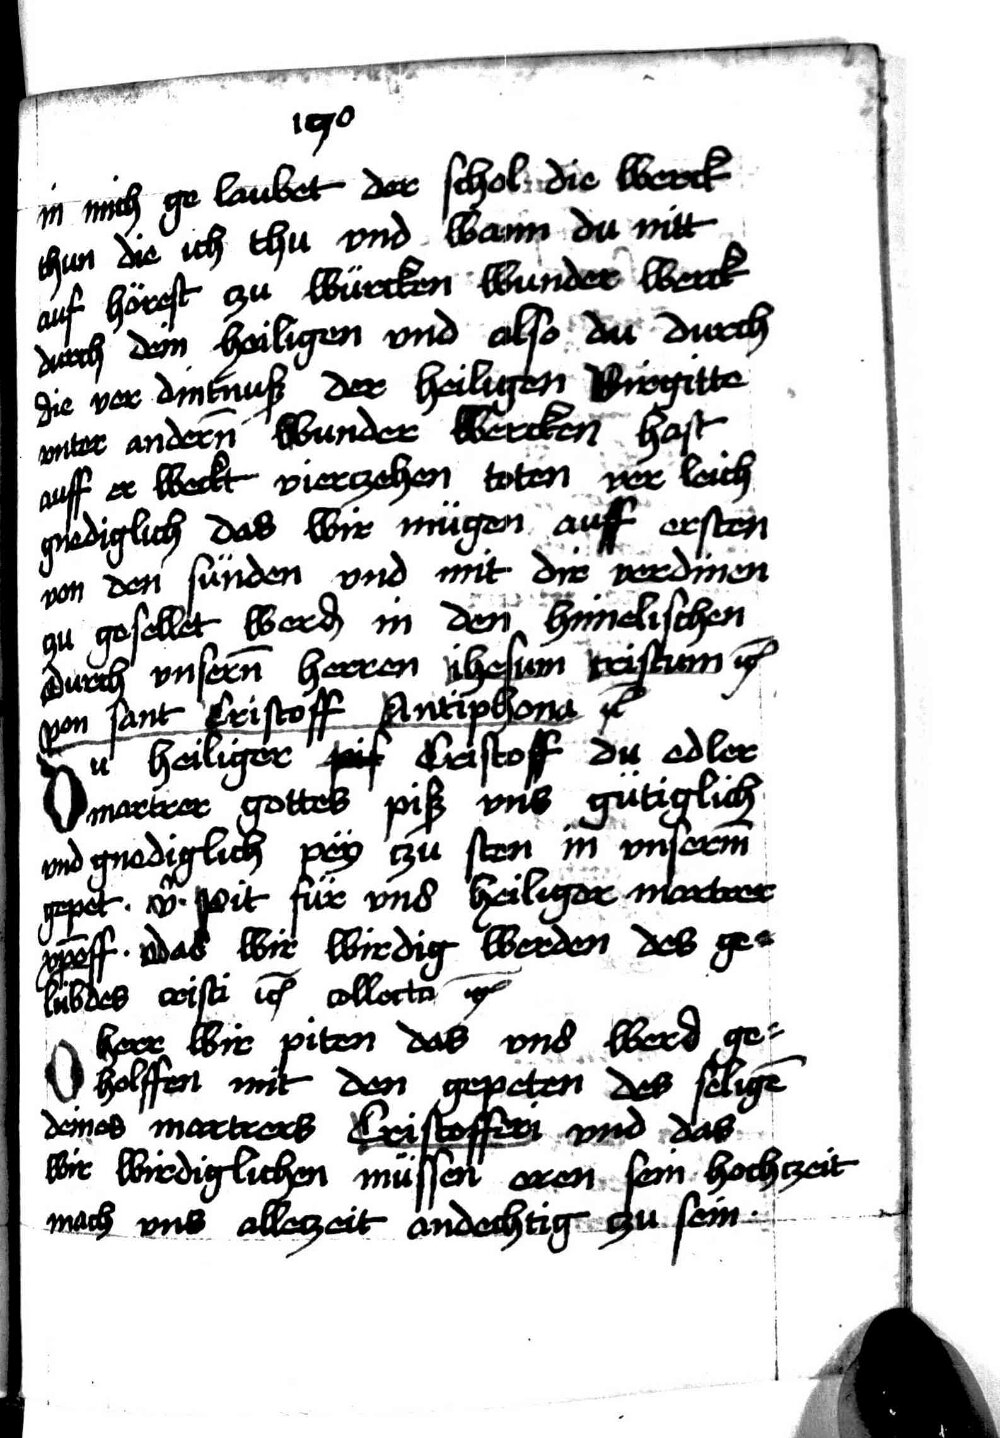 in mich ge laubet der schol die werck
thun die ich thu vnd wann du nitt
auf hörest zu würcken wunder werck
durch dein heiligen vnd also du durch
die ver dintnuß der heiligen Birgitte
vnter andern̄ wunder wercken hast
auff er weckt vierczehen toten ver leich
gnediglich das wir mügen auff ersten
von den sünden vnd mit dir verdinen
zu gesellet werdn̄ in den himelischen
Durch vnsern̄ herren ihesum cristum ic̄
von sant Cristoff Antiphona ic̄
Du heiliger Cristoff du edler
martrer gottes piß vns gütiglich
vnd gnediglich pey czu sten in vnserm̄
gepet. v̄. Pit für vns heiliger martrer
xp̄off. das wir wirdig werden des ge=
lübdes cristi ic̄ collecta
O herr wir piten das vns werd ge=
holffen mit den gepeten des seligē
deines martrers Cristofferi vnd das
wir wirdiglichen müssen eren sein hochczeit
mach vns alleczeit andechtig czu sein.